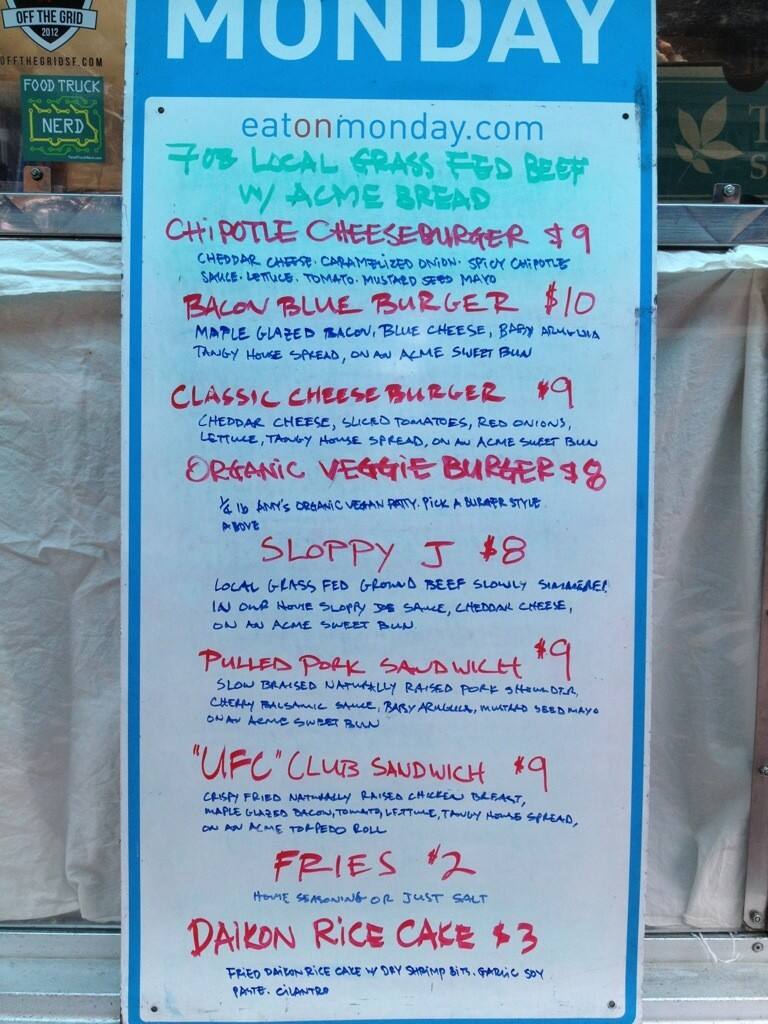 OFF THE GRID
2012
OFFTHEGRIDSF.COM
FOOD TRUCK
NERD
MONDAY
eatonmonday.com
7OZ LOCAL GRASS FED BEEF
W/ ACME BREAD
CHIPOTLE CHEESEBURGER $9
CHEDDAR CHEESE. CARAMELIZED ONION. SPICY CHIPOTLE
SAUCE. LETTUCE. TOMATO. MUSTARD SEED MAYO
BACON BLUE BURGER $10
MAPLE GLAZED BACON, BLUE CHEESE, BABY ARUGULA
TANGY HOUSE SPREAD, ON AN ACME SWEET BUN
CLASSIC CHEESEBURGER $9
CHEDDAR CHEESE, SLICED TOMATOES, RED ONIONS,
LETTUCE, TANGY HOUSE SPREAD, ON AN ACME SWEET BUN
ORGANIC VEGGIE BURGER $8
1/4 lb AMY'S ORGANIC VEGAN PATTY. PICK A BURGER STYLE
ABOVE
SLOPPY J $8
LOCAL GRASS FED GROUND BEEF SLOWLY SIMMERED
IN OUR HOUSE SLOPPY JOE SAUCE, CHEDDAR CHEESE,
ON AN ACME SWEET BUN
PULLED PORK SANDWICH $9
SLOW BRAISED NATURALLY RAISED PORK SHOULDER,
CHERRY BALSAMIC SAUCE, BABY ARUGULA, MUSTARD SEED MAYO
ON AN ACME SWEET BUN
"UFC" CLUB SANDWICH $9
CRISPY FRIED NATURALLY RAISED CHICKEN BREAST,
MAPLE GLAZED BACON, TOMATO, LETTUCE, TANGY HOUSE SPREAD,
ON AN ACME TORPEDO ROLL
FRIES $2
HOUSE SEASONING OR JUST SALT
DAIKON RICE CAKE $3
FRIED DAIKON RICE CAKE W/ DRY SHRIMP BITS. GARLIC SOY
PASTE. CILANTRO